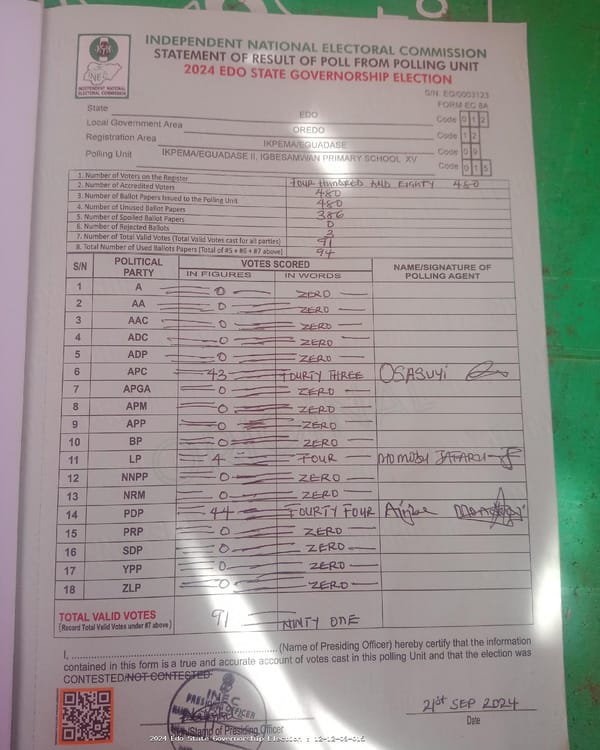 INDEPENDENT NATIONAL ELECTORAL COMMISSION
STATEMENT OF RESULT OF POLL FROM POLLING UNIT
2024 EDO STATE GOVERNORSHIP ELECTION
INEC
INDEPENDENT NATIONAL ELECTORAL COMMISSION
S/N: EG/0003123
FORM EC 8A
State EDO Code 0 1 2
Local Government Area OREDO Code 1 2
Registration Area IKPEMA/EGUADASE Code 0 9
Polling Unit IKPEMA/EGUADASE II, IGBESAMWAN PRIMARY SCHOOL XV Code 0 1 5
1. Number of Voters on the Register FOUR HUNDRED AND EIGHTY 480
2. Number of Accredited Voters
3. Number of Ballot Papers Issued to the Polling Unit 480
4. Number of Unused Ballot Papers 386
5. Number of Spoiled Ballot Papers 0
6. Number of Rejected Ballots 3
7. Number of Total Valid Votes (Total Valid Votes cast for all parties) 91
8. Total Number of Used Ballots Papers (Total of #5 + #6 + #7 above) 94
S/N POLITICAL PARTY VOTES SCORED NAME/SIGNATURE OF POLLING AGENT
IN FIGURES IN WORDS
1 A 0 ZERO
2 AA 0 ZERO
3 AAC 0 ZERO
4 ADC 0 ZERO
5 ADP 0 ZERO
6 APC 43 FOURTY THREE OSASUYI
7 APGA 0 ZERO
8 APM 0 ZERO
9 APP 0 ZERO
10 BP 0 ZERO
11 LP 4 FOUR MOMODU JAFARU
12 NNPP 0 ZERO
13 NRM 0 ZERO
14 PDP 44 FOURTY FOUR
15 PRP 0 ZERO
16 SDP 0 ZERO
17 YPP 0 ZERO
18 ZLP 0 ZERO
TOTAL VALID VOTES 91 NINTY ONE
(Record Total Valid Votes under #7 above)
I, (Name of Presiding Officer) hereby certify that the information
contained in this form is a true and accurate account of votes cast in this polling Unit and that the election was
CONTESTED/NOT CONTESTED.
INEC
PRESIDING OFFICER
21st SEP 2024
/Stamp of Presiding Officer
Date
2024 Edo State Governorship Election : 12-12-09-015